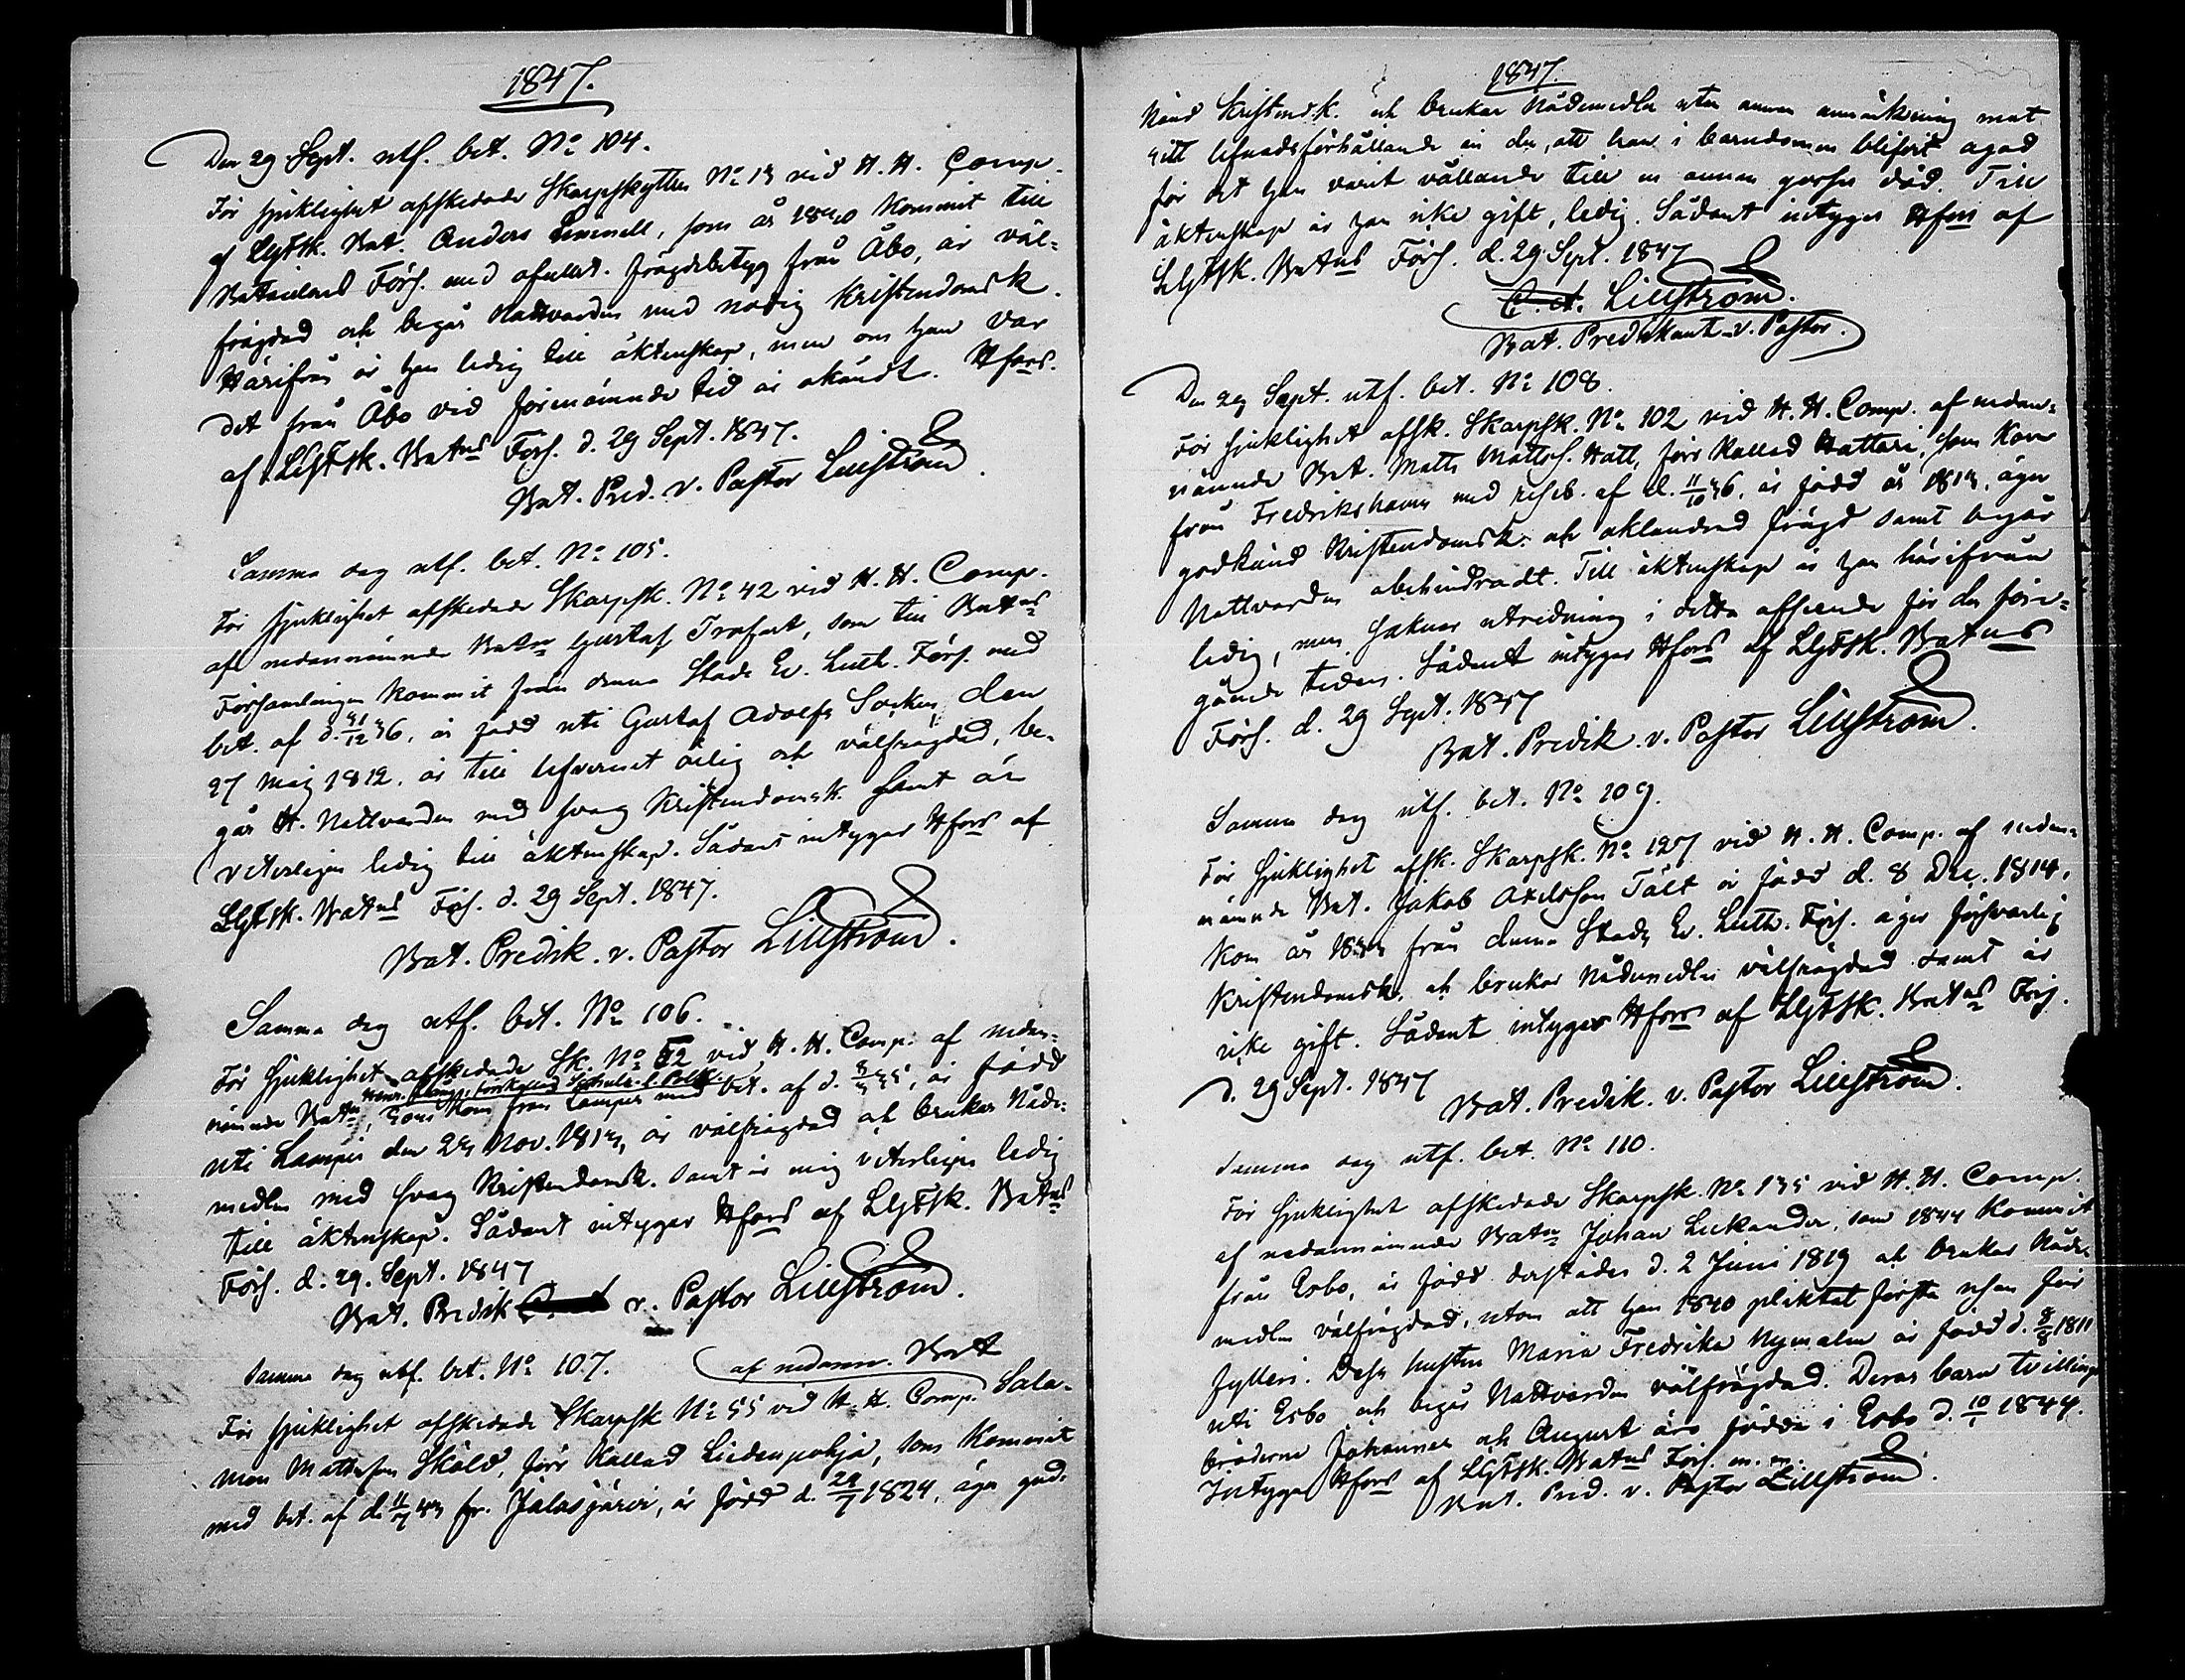 1847.
Den 29 Sept. utf. bet. No 104.
För sjuklighet afskedade Skarpskytten No 13 vid H. H. Comp.
af LGFSk. Bat. Anders Limnell, som år 1840 kommit till
Bataillons Förs. med frägdebetyg från Åbo, är väl-
frägdad och begår Nattvarden med nödig Kristendomsk.
Härifrån är han ledig till äktenskap, men om han var
det från Åbo vid förenämnde tid är okändt. Hfors.
af LGFSk. Batns Förs. d. 29 Sept. 1847.
Bat. Pred. v. Pastor Lillström.
Samma dag utf. bet. No 105.
För sjuklighet afskedade Skarpsk. No 42 vid H. H. Comp.
af nedannämnde Batn Gustaf, som till Batns
Församlingen kommit från denna Stads Ev. Luth. Förs. med
bet. af d. 31/12 36, är född uti Gustaf Adolfs Socken den
27 Maj 1812, är till lefvernet ärlig och välfrägdad, be-
går H. Nattvarden med svag Kristendomsk. samt är
veterligen ledig till äktenskap. Sådant intygar Hfors af
LGFSk. Batns Förs. d. 29 Sept. 1847.
Bat. Predik. v. Pastor Lillström.
Samma dag utf. bet. No 106.
För sjuklighet afskedade Sk. No 52 vid H. H. Comp. af nedan-
nämnde Batn, som kom från Lampis med bet. af d. 8/3 35, är född
uti Lampis den 23 Nov. 1813, är välfrägdad och brukar Nåde-
medlen med svag Kristendomsk. samt är mig veterligen ledig
till äktenskap. Sådant intygar Hfors af LGFSk. Batns
Förs. d. 29. Sept. 1847
Bat. Predik v. Pastor Lillström.
Samma dag utf. bet. No 107. af nedann. Bat
För sjuklighet afskedade Skarpsk No 55 vid H. H. Comp. Salo-
mon Mattsson Sköld, förr kallad Liedenpohja, som kommit
med bet. af d. 11/7 43 fr. Jalasjärvi, är född d. 24/7 1824, äger god-
1847.
känd Kristendk. och brukar Nådemedlen utan annan anmärkning mot
sitt lefnadsförhållande än den, att han i barndomen blifvit agad
för det han varit vållande till en annan gosses död. Till
äktenskap är han icke gift, ledig. Sådant intygar Hfors af
LGFSk. Batns Förs. d. 29 Sept. 1847
C. A. Lillström.
Bat. Predikant v. Pastor.
Den 29 Sept. utf. bet. No 108.
För sjuklighet afsk. Skarpsk. No 102 vid H. H. Comp. af nedan-
nämnde Bat. Matts Mattss. Hatt, förr kallad Hattari, som kom
från Fredrikshamn med bet. af d. 11/10 36, är född år 1813, äger
godkänd Kristendomsk. och oklandrad frägd samt begår
Nattvarden obehindradt. Till äktenskap är han härifrån
ledig, men saknar utredning i detta afseende för den före-
gående tiden. Sådant intygar Hfors af LGFSk. Batns
Förs. d. 29 Sept. 1847
Bat. Predik. v. Pastor Lillström.
Samma dag utf. bet. No 109.
För sjuklighet afsk. Skarpsk. No 127 vid H. H. Comp. af nedan-
nämnde Bat. Jakob Axelsson Tält är född d. 8 Dec. 1814,
kom år 1833 från denna Stads Ev. Luth. Förs. äger försvarlig
Kristendomsk. och brukar Nådemedlen välfrägdad samt är
icke gift. Sådant intygar Hfors af LGFSk. Batns Förs.
d. 29 Sept. 1847
Bat. Predik. v. Pastor Lillström.
Samma dag utf. bet. No 110.
För sjuklighet afskedade Skarpsk. No 135 vid H. H. Comp.
af nedannämnde Batn Johan Leekander, som 1844 kommit
från Esbo, är född derstädes d. 2 Juni 1819 och brukar Nåde-
medlen välfrägdad, utom att han 1840 pliktat första resan för
fylleri. Dess hustru Maria Fredrika Nymalm är född d. 9/8 1811
uti Esbo och begår Nattvarden välfrägdad. Deras barn tvillings
bröderne Johannes och August äro födde i Esbo d. 10/1 1844.
Intygar Hfors af LGFSk. Batns Förs. m. m.
Bat. Pred. v. Pastor Lillström.